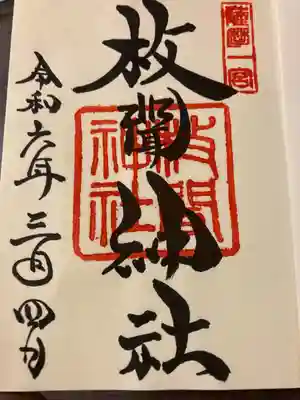 薩摩一宮
枚聞神社
枚聞
神社
令和六年三月四日